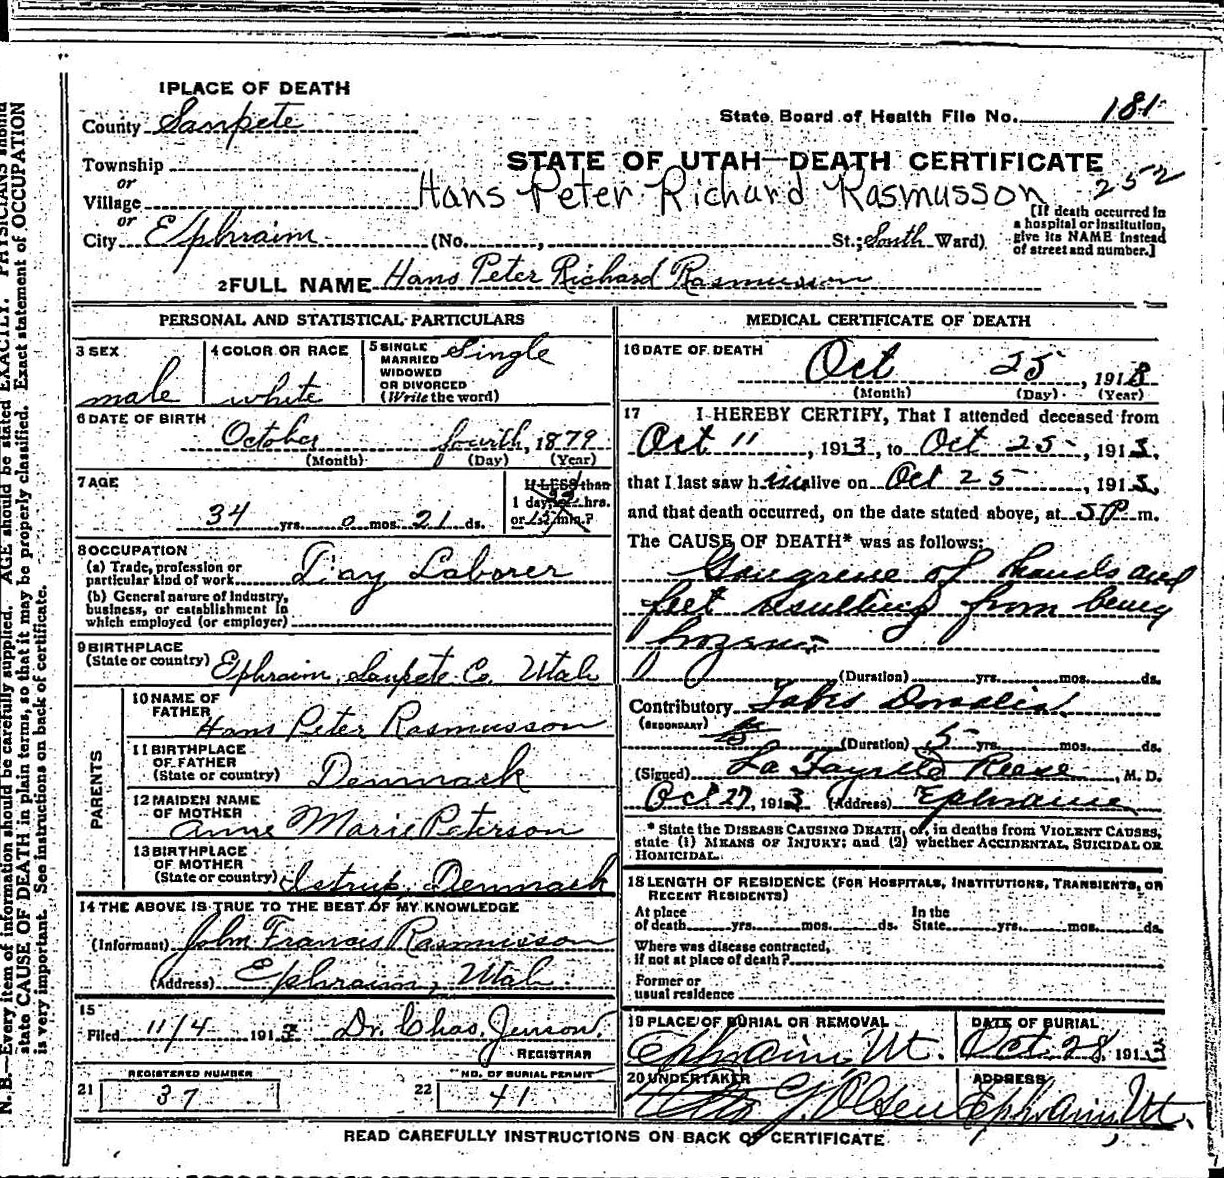 1 PLACE OF DEATH
County Sanpete
State Board of Health File No. 181
Township
or
Village
or
City Ephraim
STATE OF UTAH—DEATH CERTIFICATE
Hans Peter Richard Rasmusson 252
(No. , St.; South Ward)
[If death occurred in
a hospital or institution,
give its NAME instead
of street and number.]
2 FULL NAME Hans Peter Richard Rasmusson
PERSONAL AND STATISTICAL PARTICULARS
3 SEX
male
4 COLOR OR RACE
white
5 SINGLE
MARRIED
WIDOWED
OR DIVORCED
(Write the word)
Single
6 DATE OF BIRTH
October fourth, 1879
(Month) (Day) (Year)
7 AGE
34 yrs. 0 mos. 21 ds.
If LESS than
1 day, hrs.
or min.?
8 OCCUPATION
(a) Trade, profession or
particular kind of work Day Laborer
(b) General nature of Industry,
business, or establishment in
which employed (or employer)
9 BIRTHPLACE
(State or country) Ephraim, Sanpete Co. Utah
PARENTS
10 NAME OF
FATHER
Hans Peter Rasmusson
11 BIRTHPLACE
OF FATHER
(State or country) Denmark
12 MAIDEN NAME
OF MOTHER
Anne Marie Peterson
13 BIRTHPLACE
OF MOTHER
(State or country) Denmark
14 THE ABOVE IS TRUE TO THE BEST OF MY KNOWLEDGE
(Informant) John Francis Rasmusson
(Address) Ephraim, Utah.
15
Filed 11/4 1913 Dr. Chas. Jenson
REGISTRAR
REGISTERED NUMBER
21 37
NO. OF BURIAL PERMIT
22 41
MEDICAL CERTIFICATE OF DEATH
16 DATE OF DEATH
Oct 25, 1913
(Month) (Day) (Year)
17 I HEREBY CERTIFY, That I attended deceased from
Oct 11, 1913, to Oct 25, 1913,
that I last saw him alive on Oct 25, 1913,
and that death occurred, on the date stated above, at 5 P m.
The CAUSE OF DEATH* was as follows:
Gangrene of hands and
feet resulting from being
frozen.
(Duration) yrs. mos. ds.
Contributory Tabes Dorsalis
(SECONDARY)
(Duration) 5 yrs. mos. ds.
(Signed) La Fayette Reese, M. D.
Oct 27, 1913 (Address) Ephraim
* State the DISEASE CAUSING DEATH, or, in deaths from VIOLENT CAUSES,
state (1) MEANS OF INJURY; and (2) whether ACCIDENTAL, SUICIDAL OR
HOMICIDAL.
18 LENGTH OF RESIDENCE (FOR HOSPITALS, INSTITUTIONS, TRANSIENTS, OR
RECENT RESIDENTS)
At place
of death yrs. mos. ds.
In the
State yrs. mos. ds.
Where was disease contracted,
if not at place of death?
Former or
usual residence
19 PLACE OF BURIAL OR REMOVAL
Ephraim, Ut.
DATE OF BURIAL
Oct. 28, 1913
20 UNDERTAKER
Olsen
ADDRESS
Ephraim, Ut.
READ CAREFULLY INSTRUCTIONS ON BACK OF CERTIFICATE
N. B.—Every item of information should be carefully supplied. AGE should be stated EXACTLY. PHYSICIANS should
state CAUSE OF DEATH in plain terms, so that it may be properly classified. Exact statement of OCCUPATION
is very important. See instructions on back of certificate.